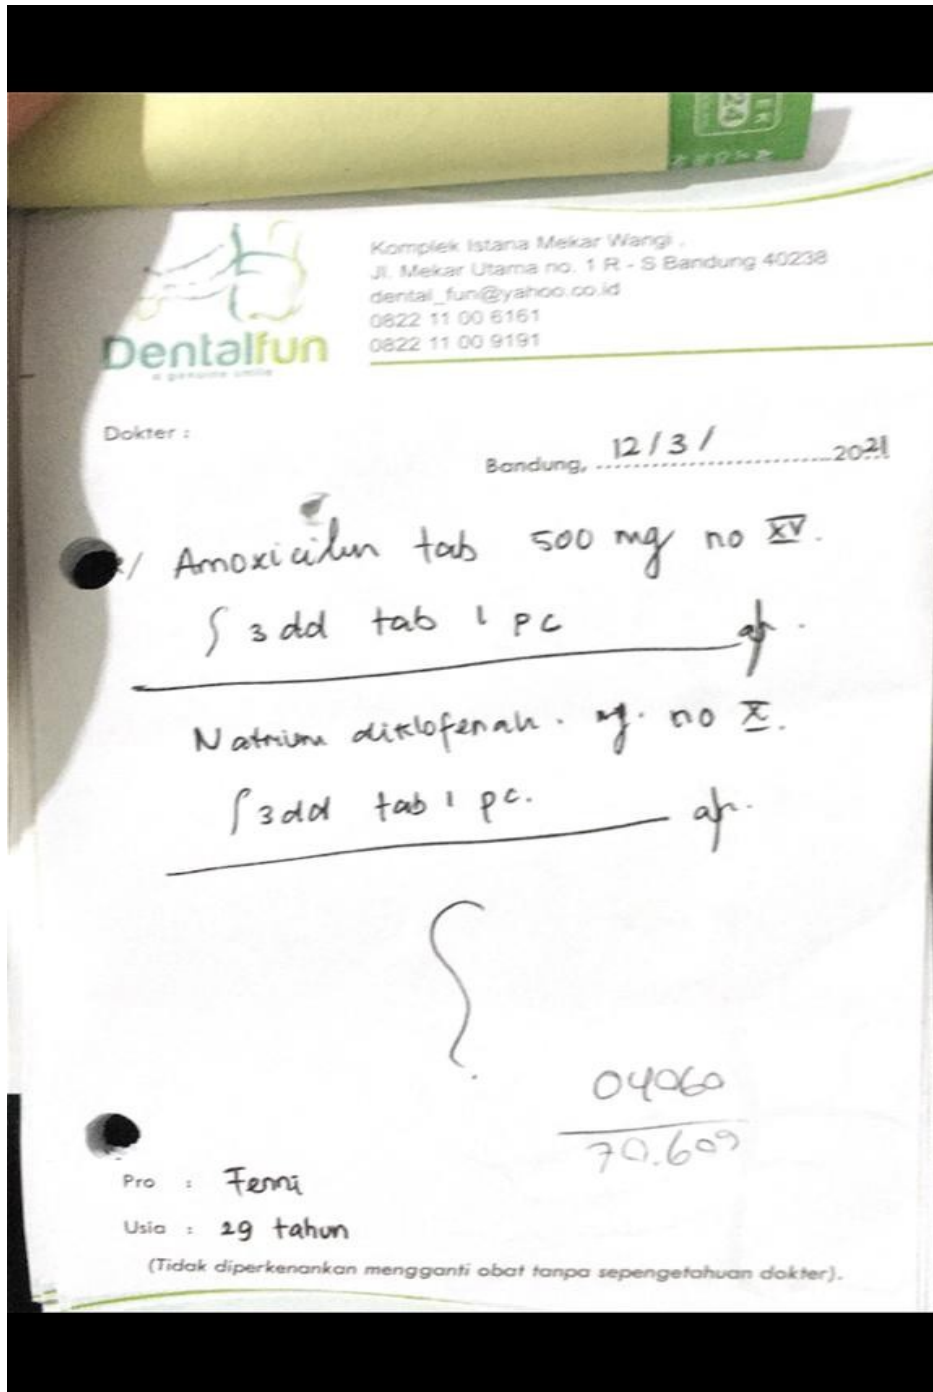 Dentalfun
a genuine smile
Komplek Istana Mekar Wangi .
Jl. Mekar Utama no. 1 R - S Bandung 40238
dental_fun@yahoo.co.id
0822 11 00 6161
0822 11 00 9191
Dokter :
Bandung, 12/3/ 2021
/ Amoxicilin tab 500 mg no XV.
3 dd tab 1 pc
Natrium diklofenak . no X.
3 dd tab 1 pc.
04060
70.609
Pro : Fenni
Usia : 29 tahun
(Tidak diperkenankan mengganti obat tanpa sepengetahuan dokter).